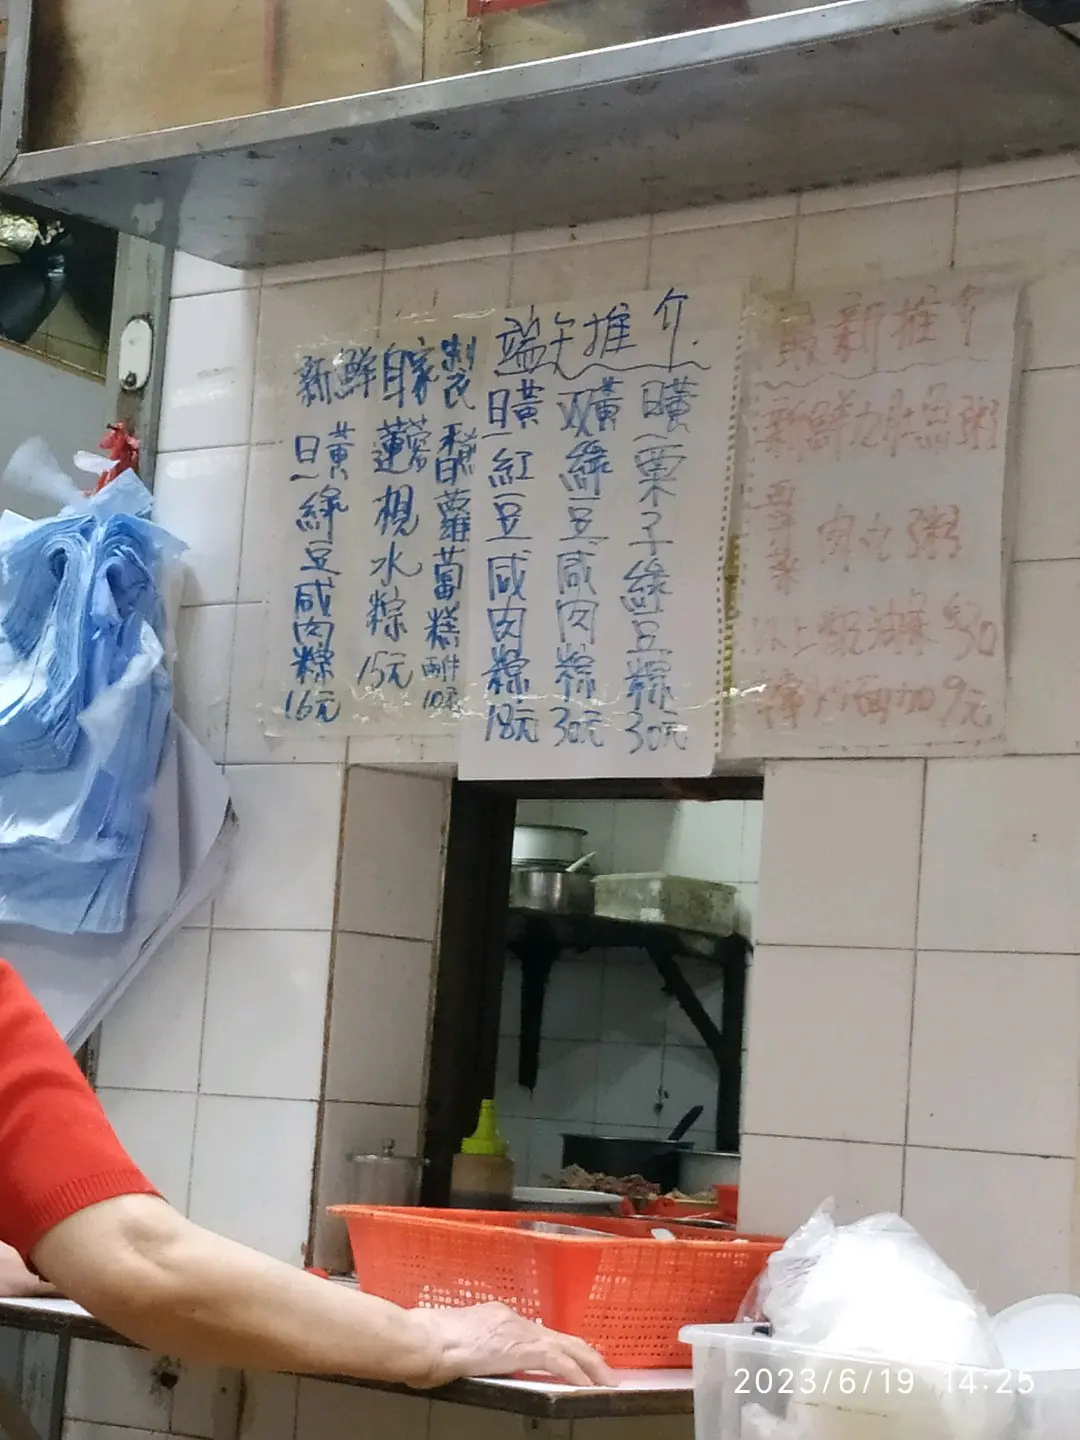 新鮮自家製
旦黃綠豆咸肉粽 16元
蓮蓉梘水粽 15元
蘿蔔糕 兩件 10元
端午推介
旦黃紅豆咸肉粽 18元
双黃綠豆咸肉粽 30元
旦黃栗子綠豆粽 30元
最新推介
新鮮 魚粥
肉丸粥
以上配油條 $30
炒面加9元
2023/6/19 14:25